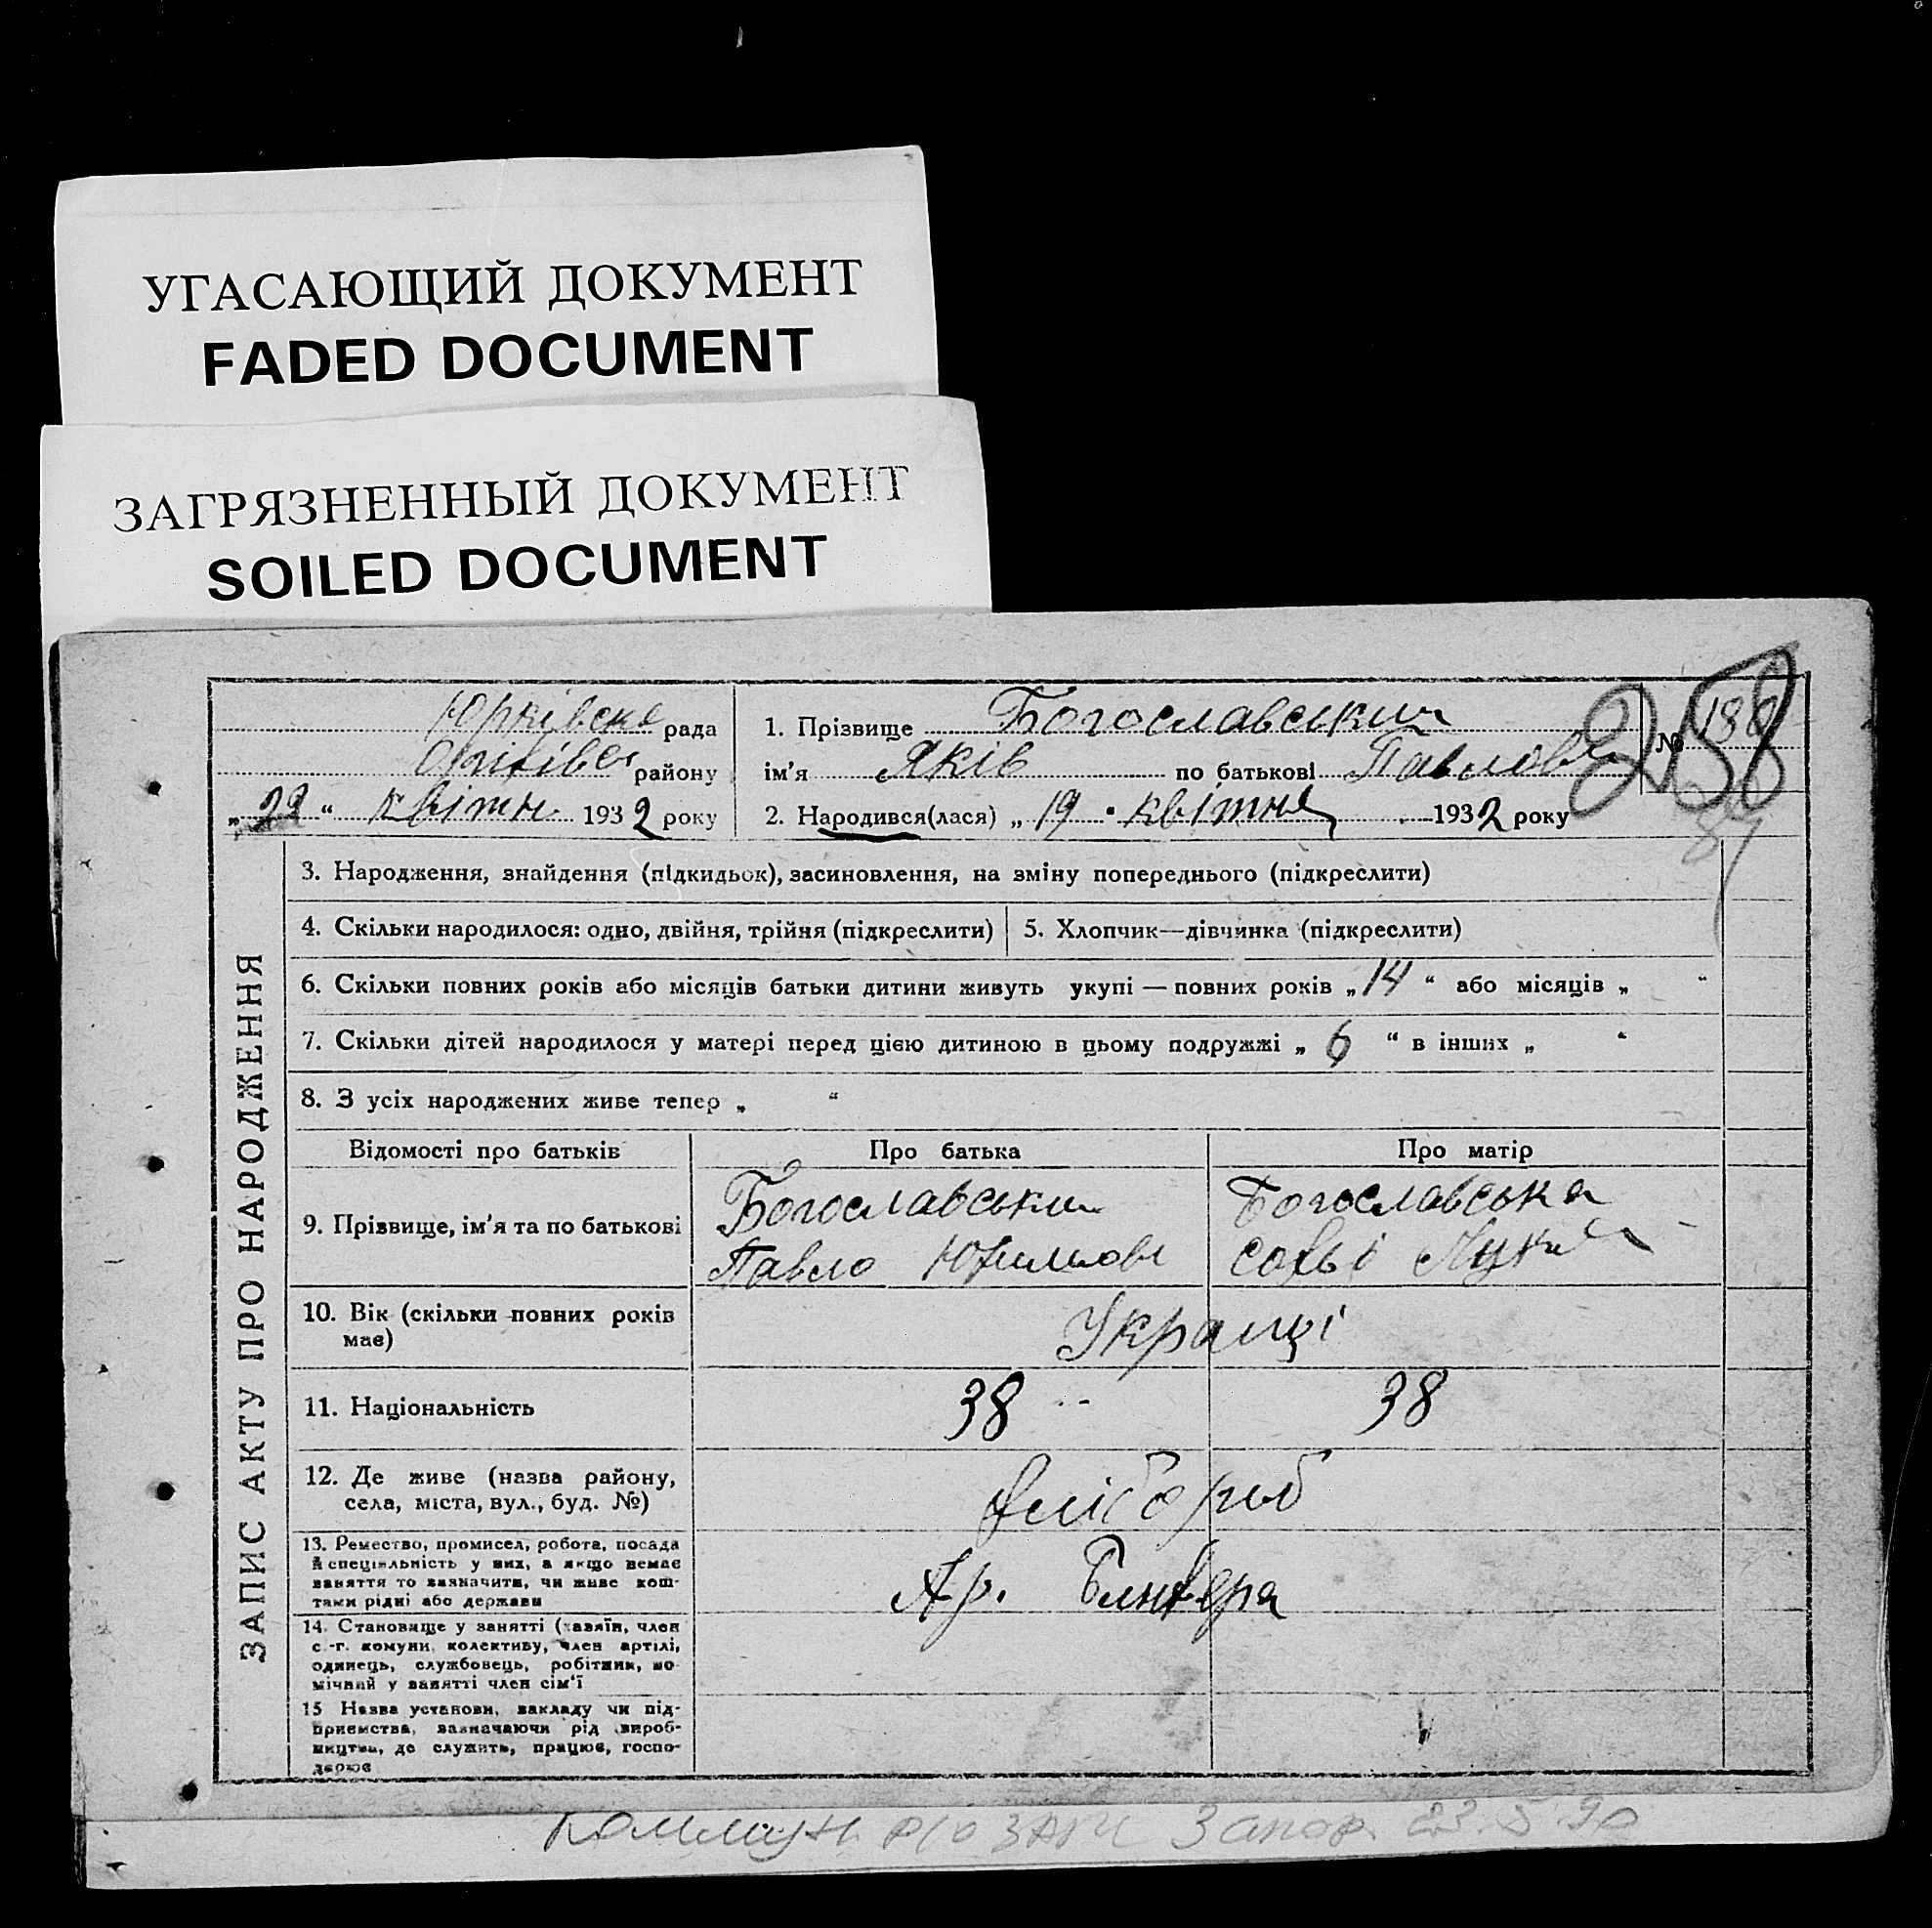 УГАСАЮЩИЙ ДОКУМЕНТ
FADED DOCUMENT
ЗАГРЯЗНЕННЫЙ ДОКУМЕНТ
SOILED DOCUMENT
Юрківська рада
району
„22“ квітня 1932 року
1. Прізвище Богославський
ім’я Яків по батькові Павлов
2. Народився(лася) „19“ квітня 1932 року
№ 188
258
87
ЗАПИС АКТУ ПРО НАРОДЖЕННЯ
3. Народження, знайдення (підкидьок), засиновлення, на зміну попереднього (підкреслити)
4. Скільки народилося: одно, двійня, трійня (підкреслити)
5. Хлопчик—дівчинка (підкреслити)
6. Скільки повних років або місяців батьки дитини живуть укупі — повних років „14“ або місяців „ “
7. Скільки дітей народилося у матері перед цією дитиною в цьому подружжі „6“ в інших „ “
8. З усіх народжених живе тепер „ “
Відомості про батьків
Про батька
Про матір
9. Прізвище, ім’я та по батькові
Богославський
Павло
Богославська
Софьі
10. Вік (скільки повних років
має)
Украпці
11. Національність
38
38
12. Де живе (назва району,
села, міста, вул., буд. №)
хлібороб
13. Ремество, промисел, робота, посада
й спеціяльність у них, а якщо немає
заняття то зазначити, чи живе кош-
тами рідні або держави
Ар.
14. Становище у занятті (хазяїн, член
с.-г. комуни, колективу, член артілі,
одинець, службовець, робітник, по-
мічний у занятті член сім’ї
15 Назва установи, закладу чи під-
приємства, зазначаючи рід вироб-
ництва, де служить, працює, госпо-
дарює
Коммун. р/о ЗАГС Запор. 23.5.90